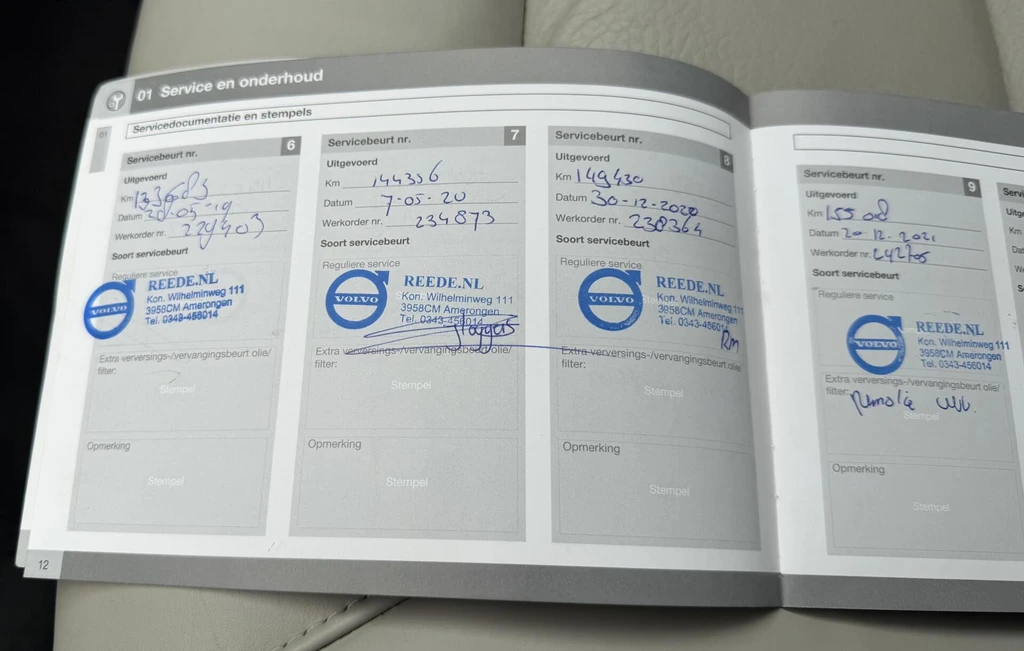 01 Service en onderhoud
01
Servicedocumentatie en stempels
Servicebeurt nr. 6
Uitgevoerd
Km
Datum 28-05-19
Werkorder nr. 229403
Soort servicebeurt
Reguliere service
VOLVO
REEDE.NL
Kon. Wilhelminweg 111
3958CM Amerongen
Tel. 0343-456014
Extra verversings-/vervangingsbeurt olie/
filter:
Stempel
Opmerking
Stempel
12
Servicebeurt nr. 7
Uitgevoerd
Km 144356
Datum 7-05-20
Werkorder nr. 234873
Soort servicebeurt
Reguliere service
VOLVO
REEDE.NL
Kon. Wilhelminweg 111
3958CM Amerongen
Tel. 0343-456014
Extra verversings-/vervangingsbeurt olie/
filter:
Stempel
Opmerking
Stempel
Servicebeurt nr. 8
Uitgevoerd
Km 149430
Datum 30-12-2020
Werkorder nr. 238364
Soort servicebeurt
Reguliere service
VOLVO
REEDE.NL
Kon. Wilhelminweg 111
3958CM Amerongen
Tel. 0343-456014
Rm
Extra verversings-/vervangingsbeurt olie/
filter:
Stempel
Opmerking
Stempel
Servicebeurt nr. 9
Uitgevoerd
Km
Datum 20-12-2021
Werkorder nr. 242705
Soort servicebeurt
Reguliere service
VOLVO
REEDE.NL
Kon. Wilhelminweg 111
3958CM Amerongen
Tel. 0343-456014
Extra verversings-/vervangingsbeurt olie/
filter:
Stempel
Opmerking
Stempel
Servic
Uitg
Km
Datu
We
So